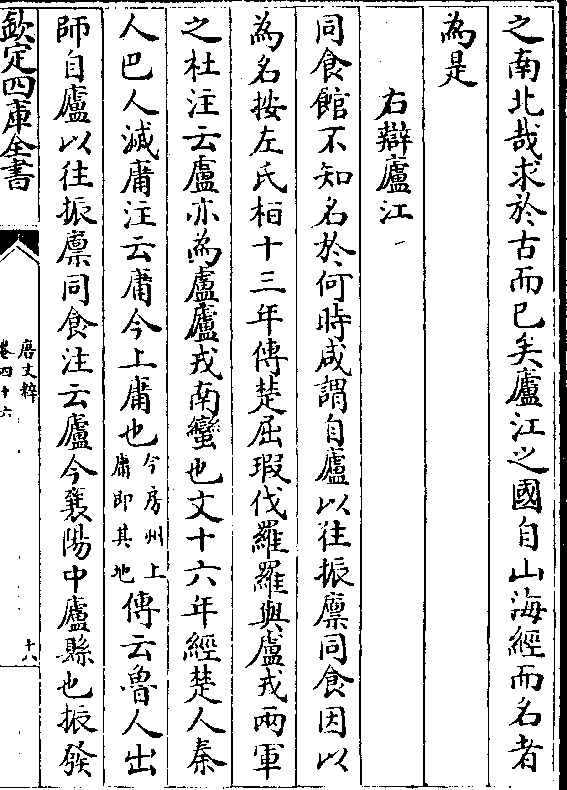 之南北哉求於古而已矣廬江之國自山海經而名者
為是
右辯廬江
同食館不知名於何時咸謂自廬以往振廩同食因以
為名按左氏桓十三年傳楚屈瑕伐羅羅與盧戎兩軍
之杜注云盧亦為廬廬戎南蠻也文十六年經楚人秦
人巴人滅庸注云庸今上庸也今房州上庸即其地傳云魯人出
師自廬以往振廩同食注云廬今襄陽中廬縣也振發
欽定四庫全書
唐文粹
卷四十六
十八